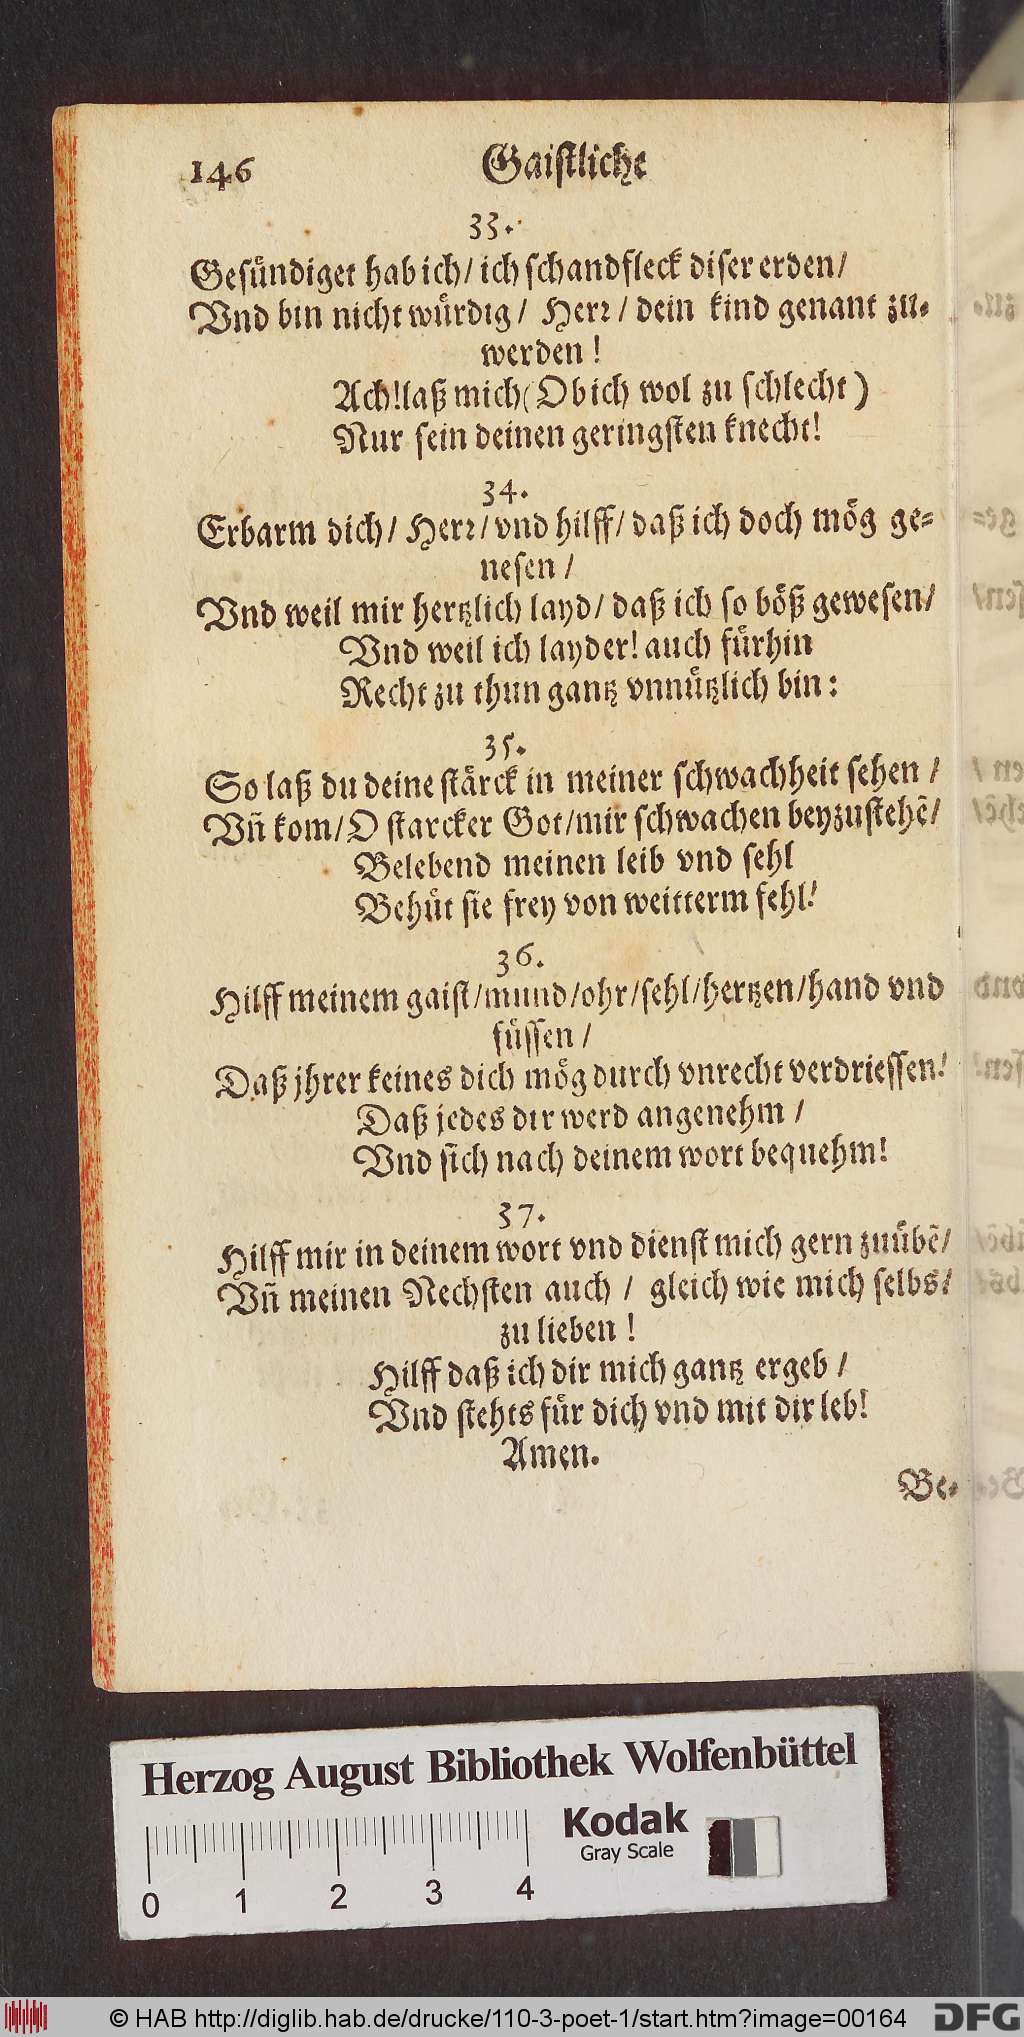 146 Gaistliche
33.
Gesündiget hab ich/ ich schandfleck diser erden/
Vnd bin nicht würdig/ Herr/ dein kind genant zu-
werden!
Ach! laß mich (Ob ich wol zu schlecht)
Nur sein deinen geringsten knecht!
34.
Erbarm dich/ Herr/ vnd hilff/ daß ich doch mög ge-
nesen/
Vnd weil mir hertzlich layd/ daß ich so böß gewesen/
Vnd weil ich layder! auch fürhin
Recht zu thun gantz vnnützlich bin:
35.
So laß du deine stärck in meiner schwachheit sehen/
Vñ kom/ O starcker Got/ mir schwachen beyzustehẽ/
Belebend meinen leib vnd sehl
Behüt sie frey von weitterm fehl!
36.
Hilff meinem gaist/ mund/ ohr/ sehl/ hertzen/ hand vnd
füssen/
Daß jhrer keines dich mög durch vnrecht verdriessen!
Daß jedes dir werd angenehm/
Vnd sich nach deinem wort bequehm!
37.
Hilff mir in deinem wort vnd dienst mich gern zuübẽ/
Vñ meinen Nechsten auch/ gleich wie mich selbs/
zu lieben!
Hilff daß ich dir mich gantz ergeb/
Vnd stehts für dich vnd mit dir leb!
Amen.
Be-
Herzog August Bibliothek Wolfenbüttel
Kodak
Gray Scale
0 1 2 3 4
© HAB http://diglib.hab.de/drucke/110-3-poet-1/start.htm?image=00164 DFG